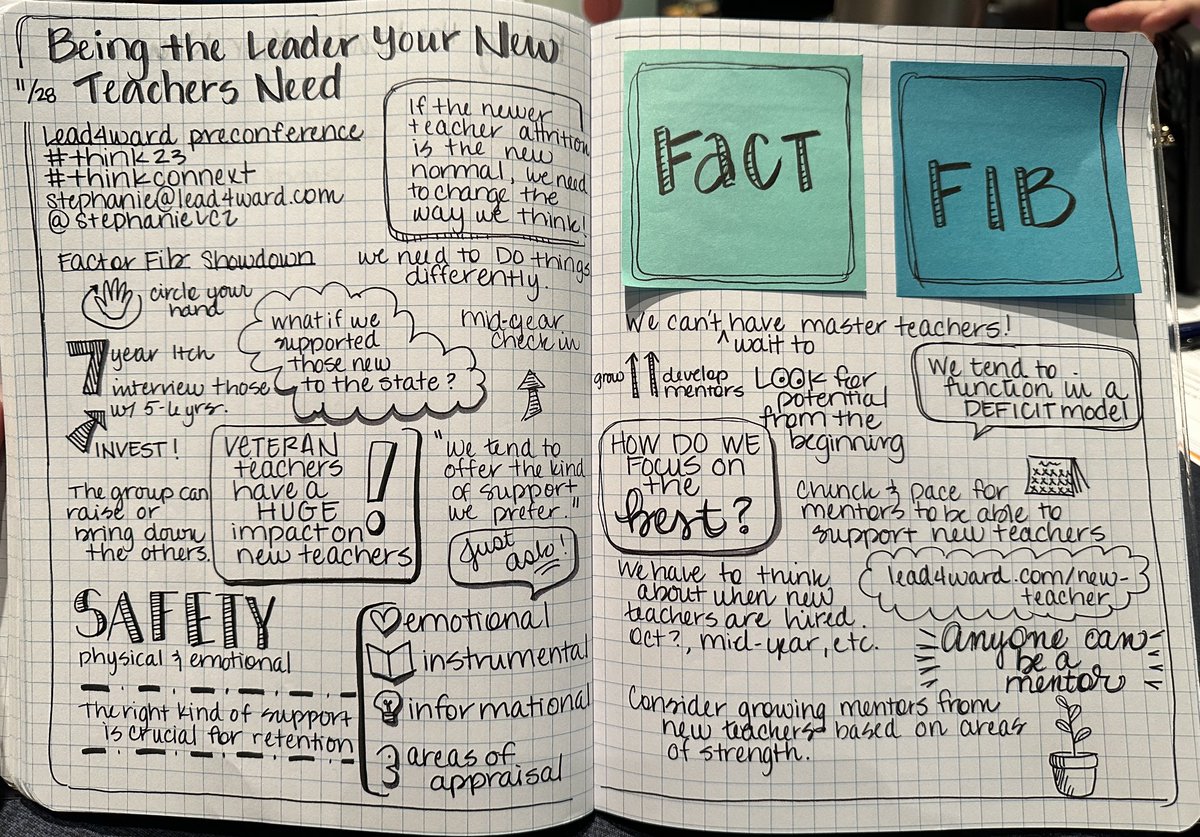 Being the Leader Your New
11/28 Teachers Need
Lead4ward preconference
#think23
#thinkconnext
stephanie@lead4ward.com
@stephanievcz
If the newer
teacher attrition
is the new
normal, we need
to change the
way we think!
we need to DO things
differently.
Fact or Fib Showdown
circle your
hand
what if we
supported
those new
to the state?
mid-year
check in
7 year Itch
interview those
w/ 5-6 yrs.
INVEST!
VETERAN
teachers
have a
HUGE
impact on
new teachers
!
"We tend to
offer the kind
of support
we prefer."
Just
ask!
The group can
raise or
bring down
the others.
SAFETY
physical & emotional
The right kind of support
is crucial for retention
emotional
instrumental
informational
3 areas of
appraisal
FACT
FIB
We can't have master teachers!
^ wait to
grow develop
mentors
LOOK for
potential
from the
beginning
We tend to
function in a
DEFICIT model
HOW DO WE
FOCUS ON
the
best?
Chunck & pace for
mentors to be able to
support new teachers
We have to think
about when new
teachers are hired.
Oct?, mid-year, etc.
lead4ward.com/new-
teacher
Anyone can
be a
mentor
Consider growing mentors from
new teachers based on areas
of strength.